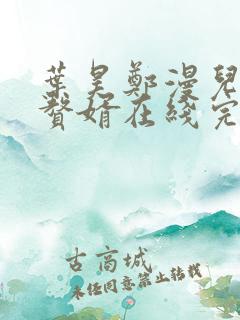 葉昊鄭漫兒
贅婿在綫完
古高城
未經同意禁止轉載